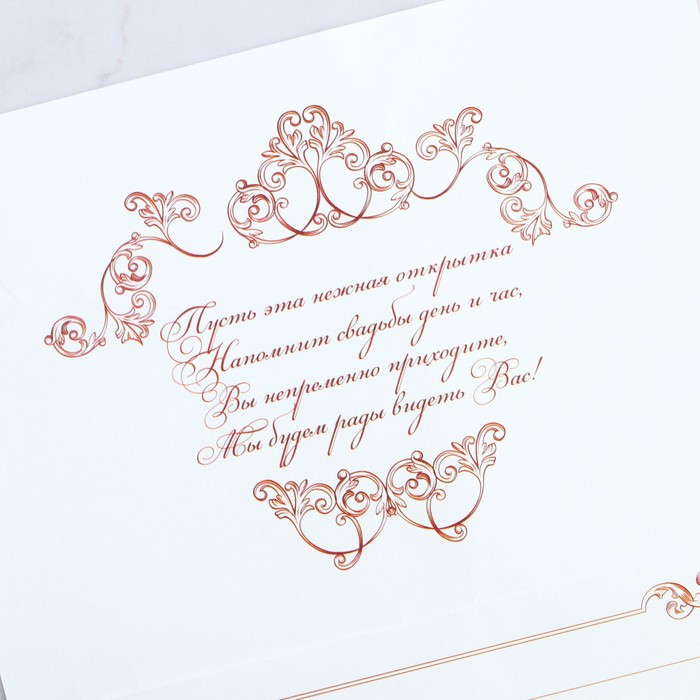 Пусть эта нежная открытка
Напомнит свадьбы день и час,
Вы непременно приходите,
Мы будем рады видеть Вас!